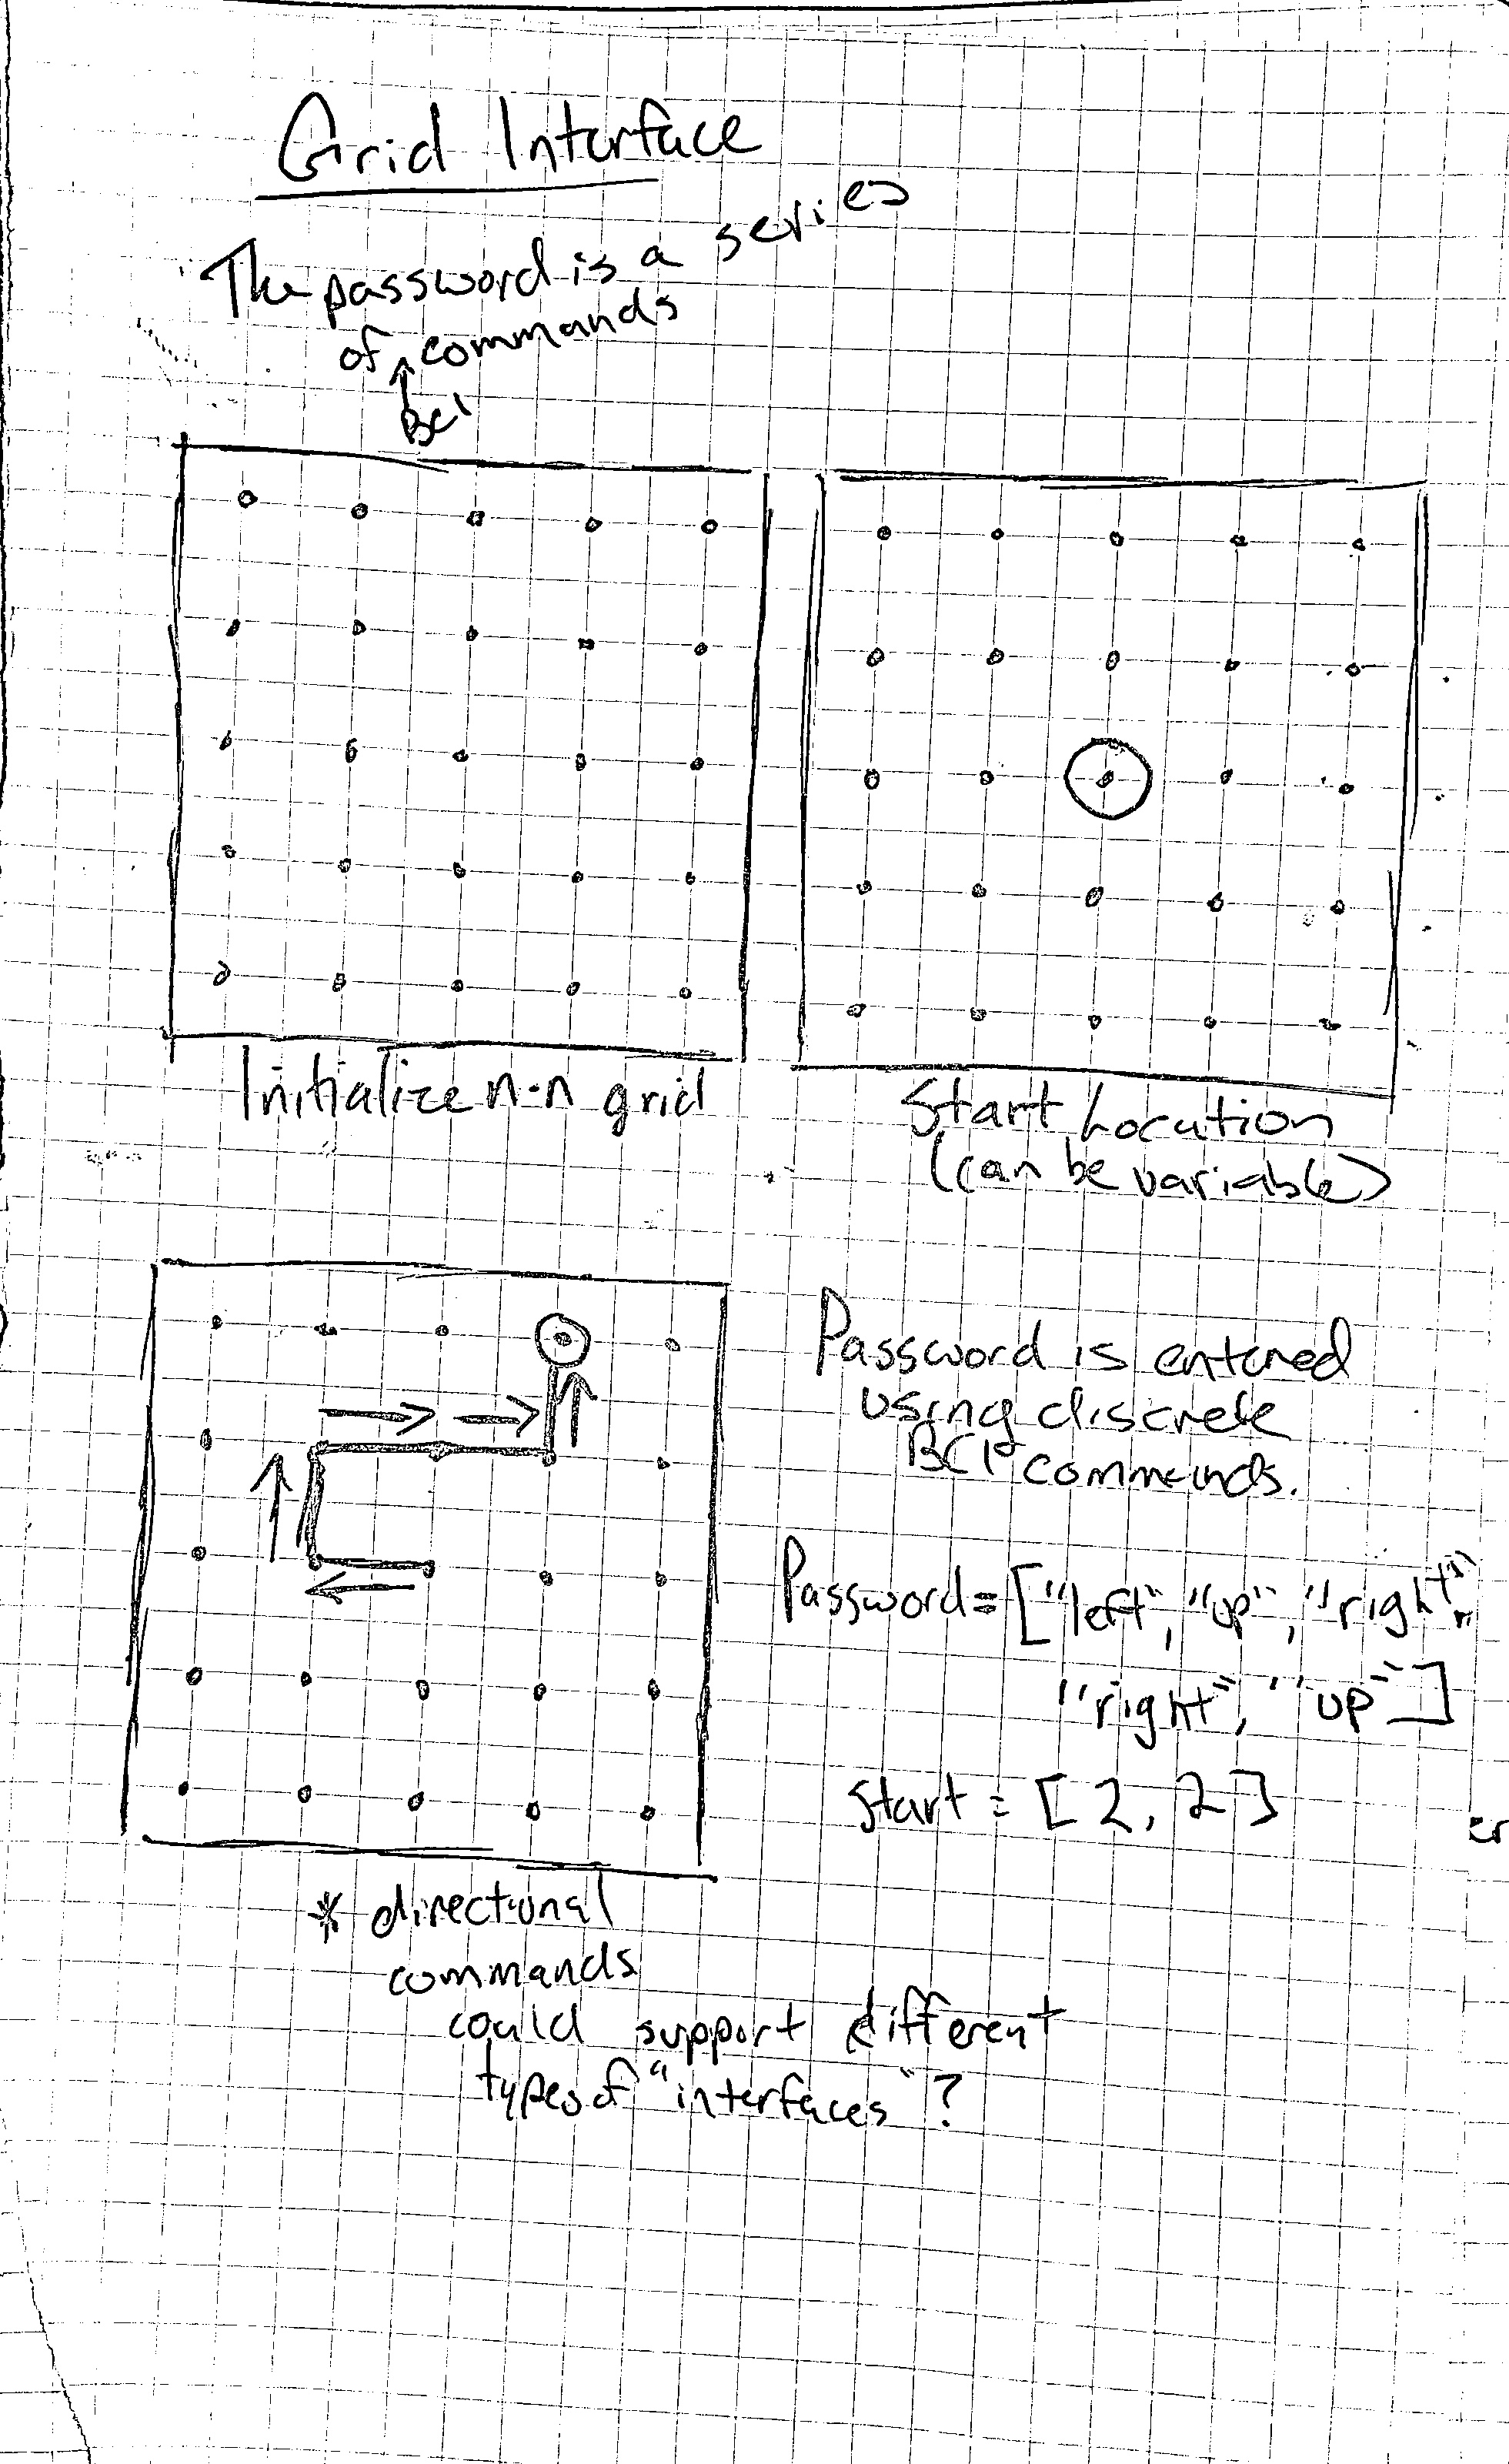 Grid Interface
The password is a series
of commands
BCI
Initialize n·n grid
Start Location
(can be variable)
Password is entered
using discrete
BCI commands.
Password = ["left", "up", "right",
"right", "up"]
Start = [2, 2]
er
* directional
commands
could support different
types of "interfaces"?